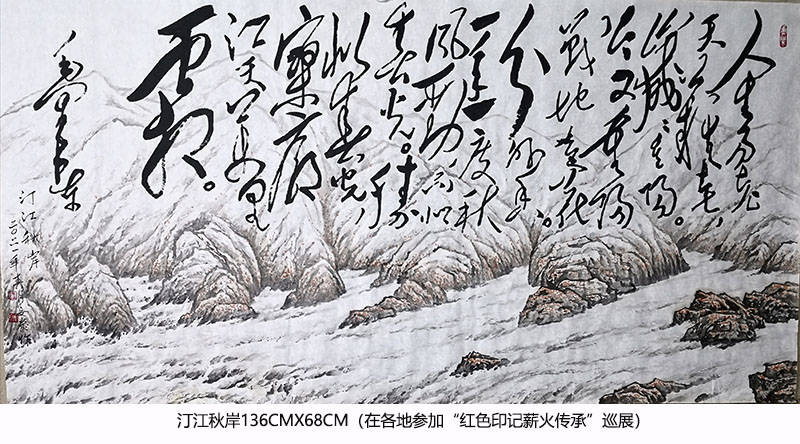 人生易老
天難老，
歲歲重陽。
今又重陽
戰地黃花
分外香。
一年一度秋
風勁不似
春光。勝
似春光，
寥廓
江天萬里
霜。
毛澤東
汀江秋岸
二〇二一年
汀江秋岸136CMX68CM（在各地参加“红色印记薪火传承”巡展）